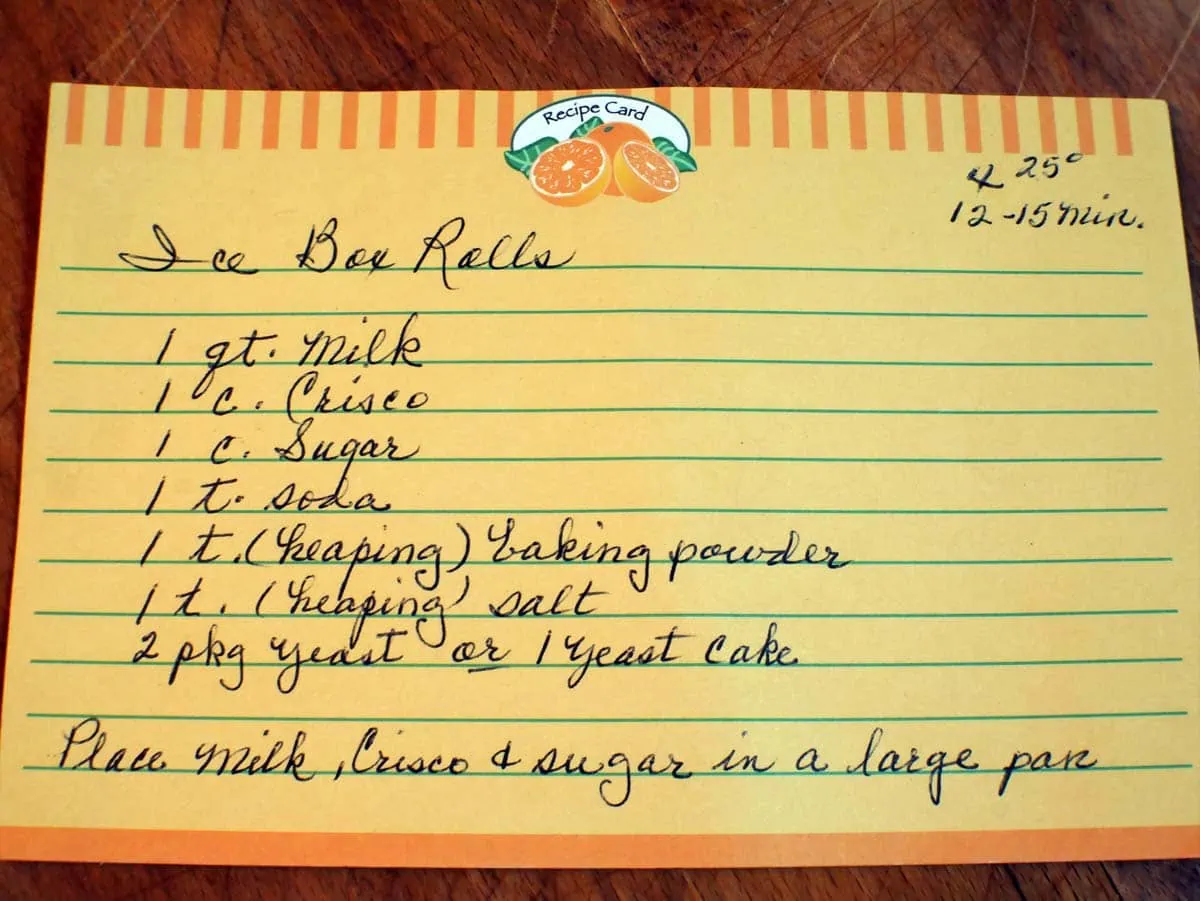 Recipe Card
425°
12-15 min.
Ice Box Rolls
1 qt. Milk
1 c. Crisco
1 c. Sugar
1 t. soda
1 t. (heaping) baking powder
1 t. (heaping) salt
2 pkg yeast or 1 yeast cake
Place milk, Crisco & sugar in a large pan